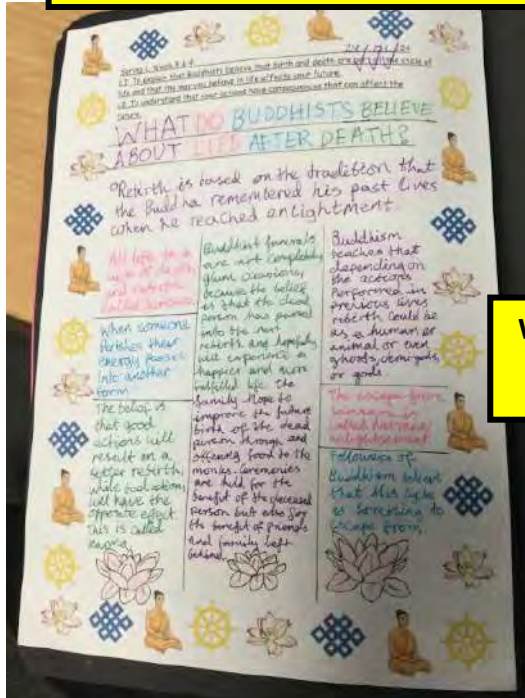 Spring 1, Week 3 & 4
L.I. To explain that Buddhists believe that birth and death are part of the cycle of
life and that the way you behave in life affects your future.
L.I. To understand that your actions have consequences that can affect the
future.
WHAT DO BUDDHISTS BELIEVE
ABOUT LIFE AFTER DEATH?
Rebirth is based on the tradition that
the Buddha remembered his past lives
when he reached enlightment.
All life is a
cycle of death
and rebirth
called samsara.
When someone
their
energy passes
into another
form
The belief is
that good
actions will
result in a
better rebirth,
while bad actions
will have the
opposite effect
This is called
Karma.
Buddhist funerals
are not completely
glum occasions,
because the belief
is that the dead
person has passed
into the next
rebirth and hopefully
will experience a
happier and more
fulfilled life. The
family hope to
improve the future
birth of the dead
person through and
offering food to the
monks. Ceremonies
are held for the
benefit of the deceased
person but also for
the benefit of friends
and family left
behind.
Buddhism
teaches that
depending on
the actions
performed in
previous lives
rebirth could be
as a human or
animal or even
ghosts, demi-gods,
or gods.
The escape from
samsara is
called Nirvana/
enlightenment.
Followers of
Buddhism
that this cycle
is something to
escape from.